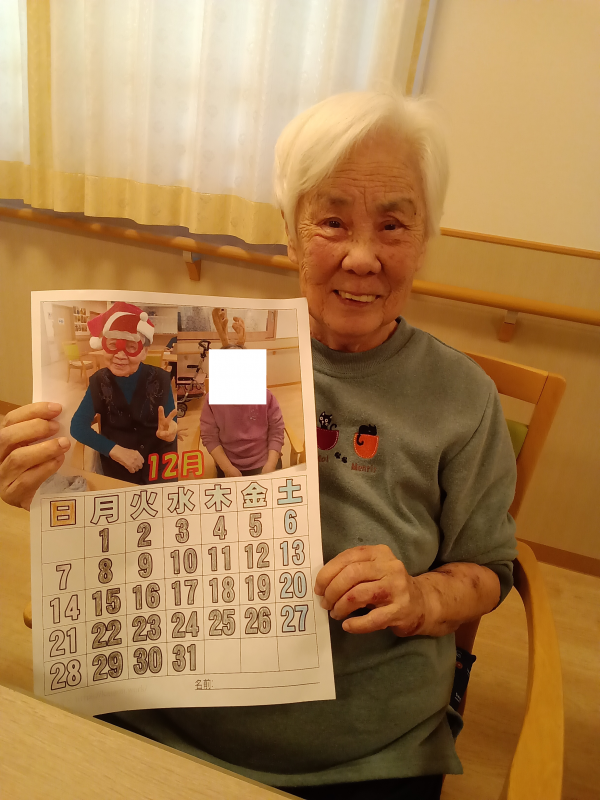 12月
日 月 火 水 木 金 土
1 2 3 4 5 6
7 8 9 10 11 12 13
14 15 16 17 18 19 20
21 22 23 24 25 26 27
28 29 30 31
名前: